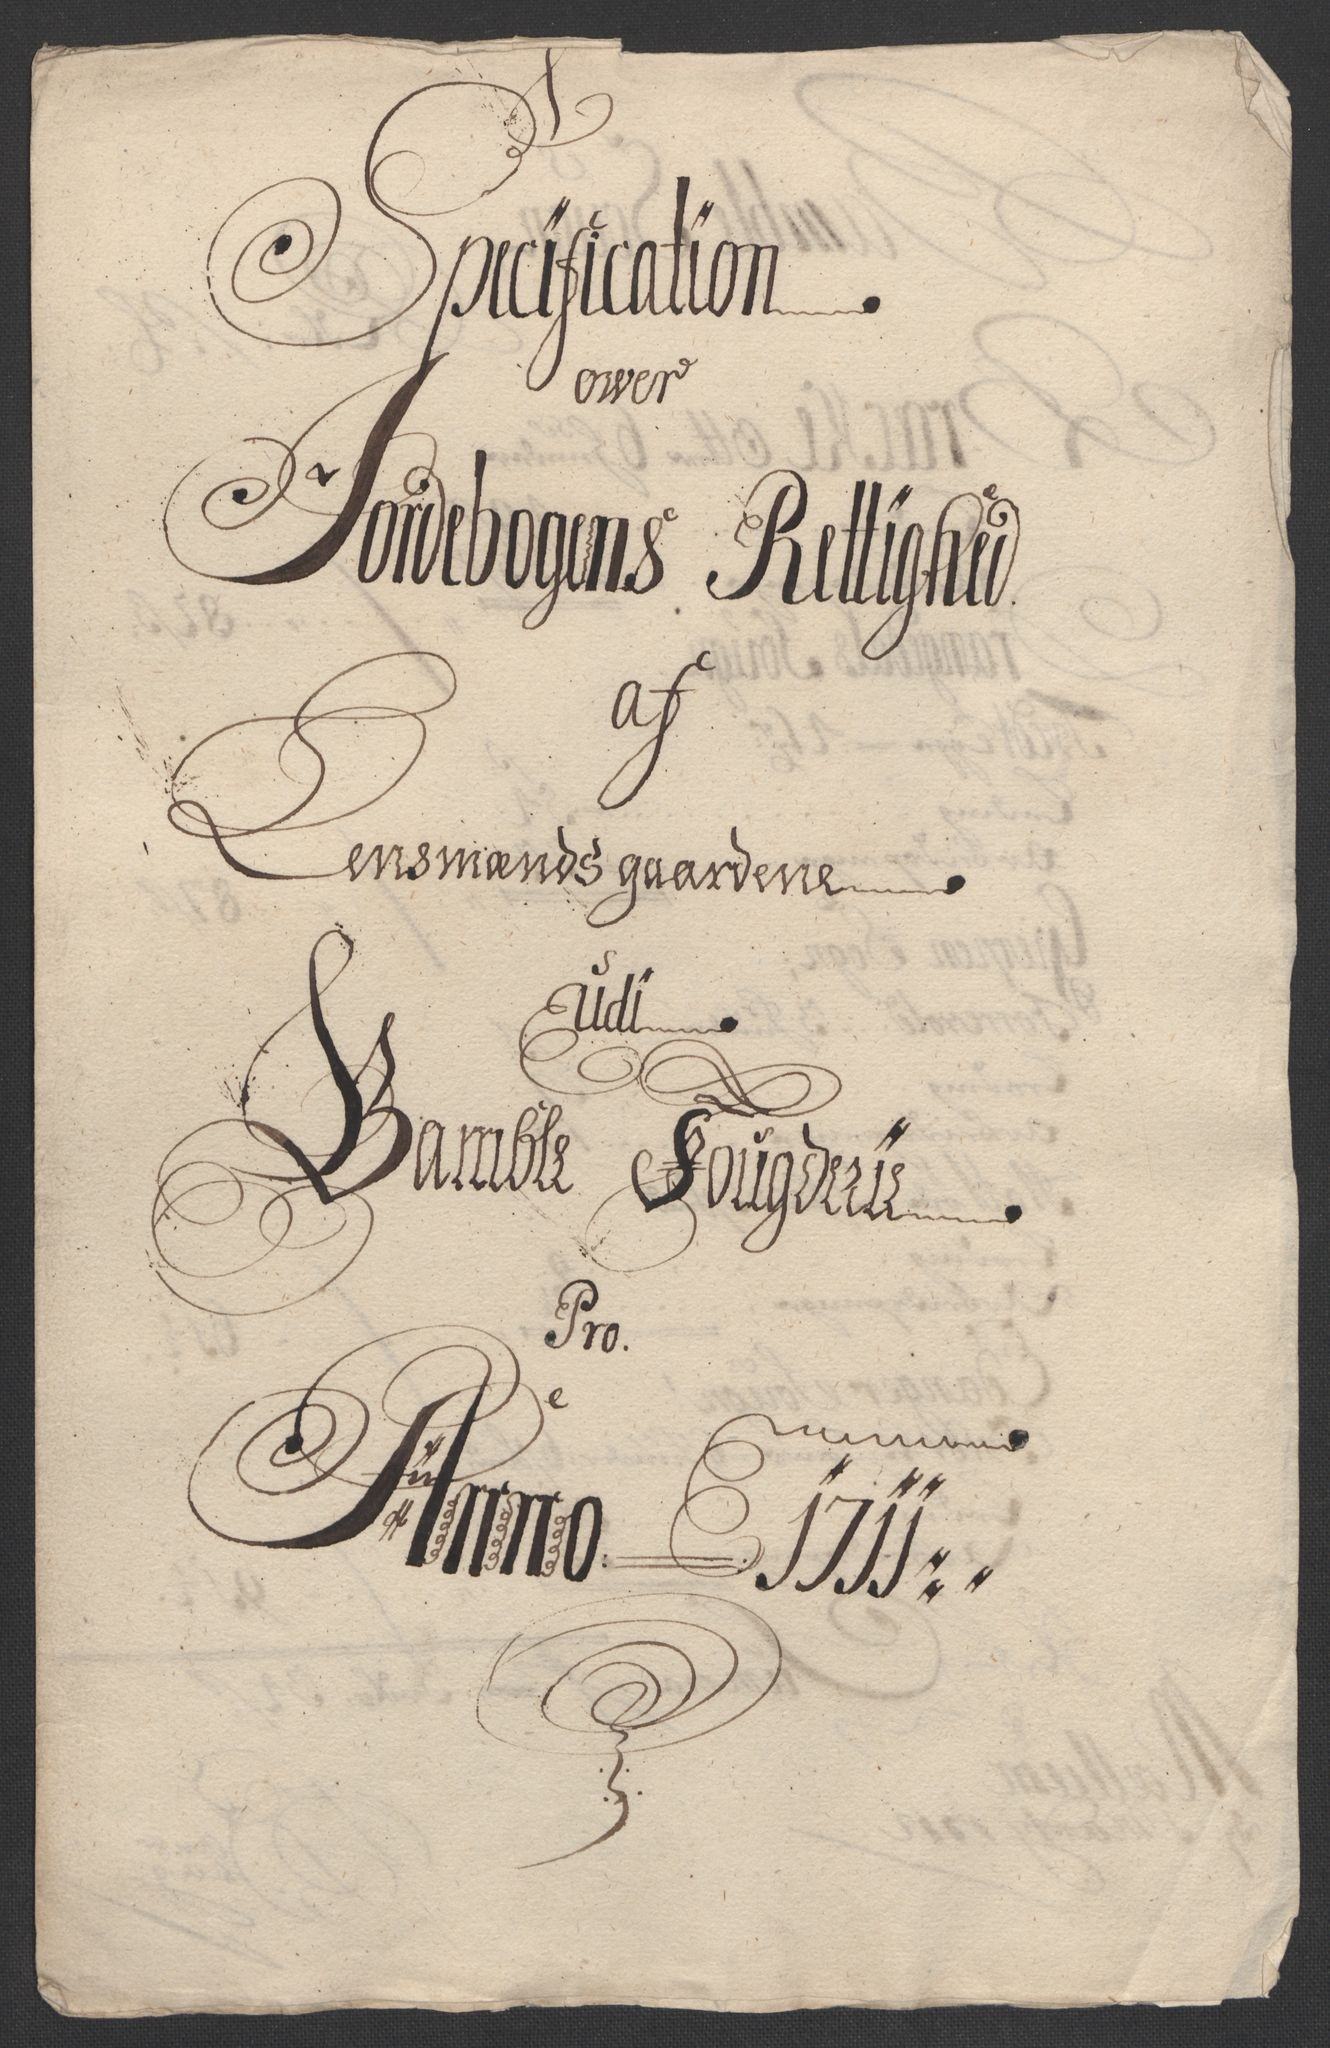 Specification
ower
Jordebogens Rettighed
af
Lensmænds gaardene
udi
Bamble Fougderie
Pro.
Anno 1711